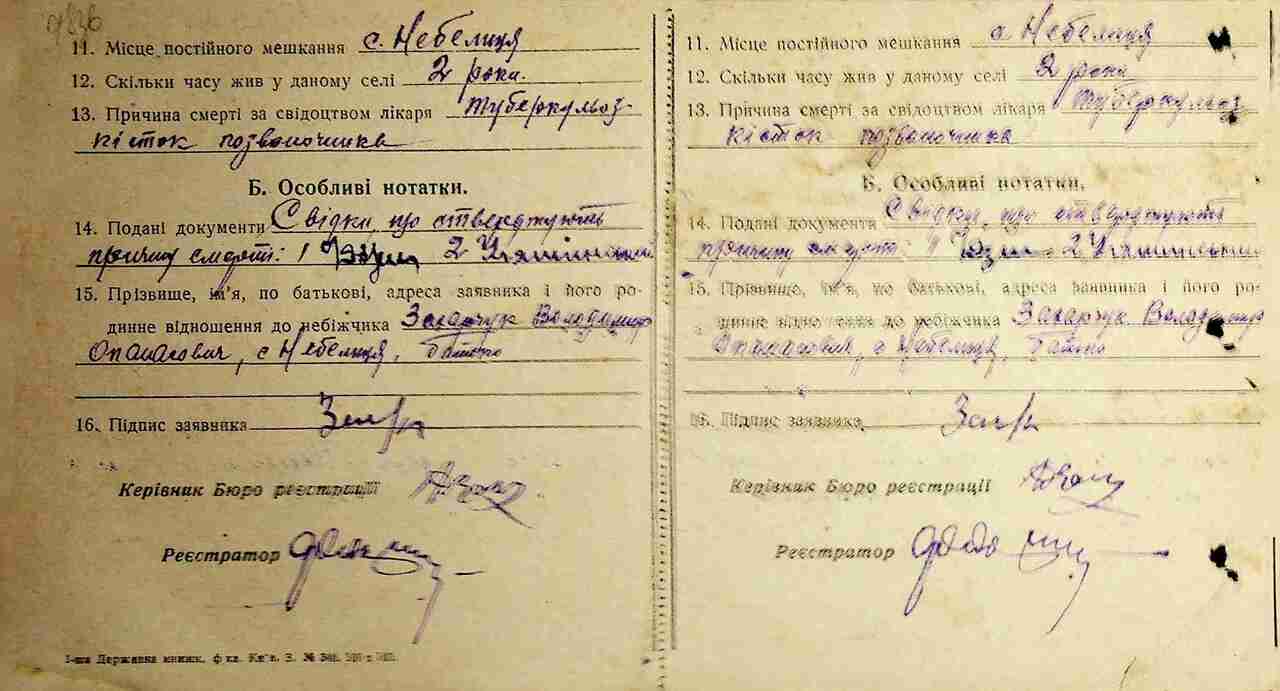 11. Місце постійного мешкання с. Небелиця
12. Скільки часу жив у даному селі 2 роки.
13. Причина смерті за свідоцтвом лікаря туберкульоз
кісток позвоночника
Б. Особливі нотатки.
14. Подані документи Свідки, що стверджують
причину смерті: 1 2
15. Прізвище, ім'я, по батькові, адреса заявника і його ро-
динне відношення до небіжчика Захарчук Володимир
Опанасович, с Небелиця, батько
16. Підпис заявника
Керівник Бюро реєстрації
Реєстратор
11. Місце постійного мешкання с. Небелиця
12. Скільки часу жив у даному селі 2 роки
13. Причина смерті за свідоцтвом лікаря туберкульоз
кісток позвоночника
Б. Особливі нотатки.
14. Подані документи Свідки, що стверджують
причину смерті: 1 2
15. Прізвище, ім'я, по батькові, адреса заявника і його ро-
динне відношення до небіжчика Захарчук Володимир
Опанасович, с Небелиця, батько
16. Підпис заявника
Керівник Бюро реєстрації
Реєстратор